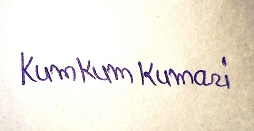 KumKum Kumari